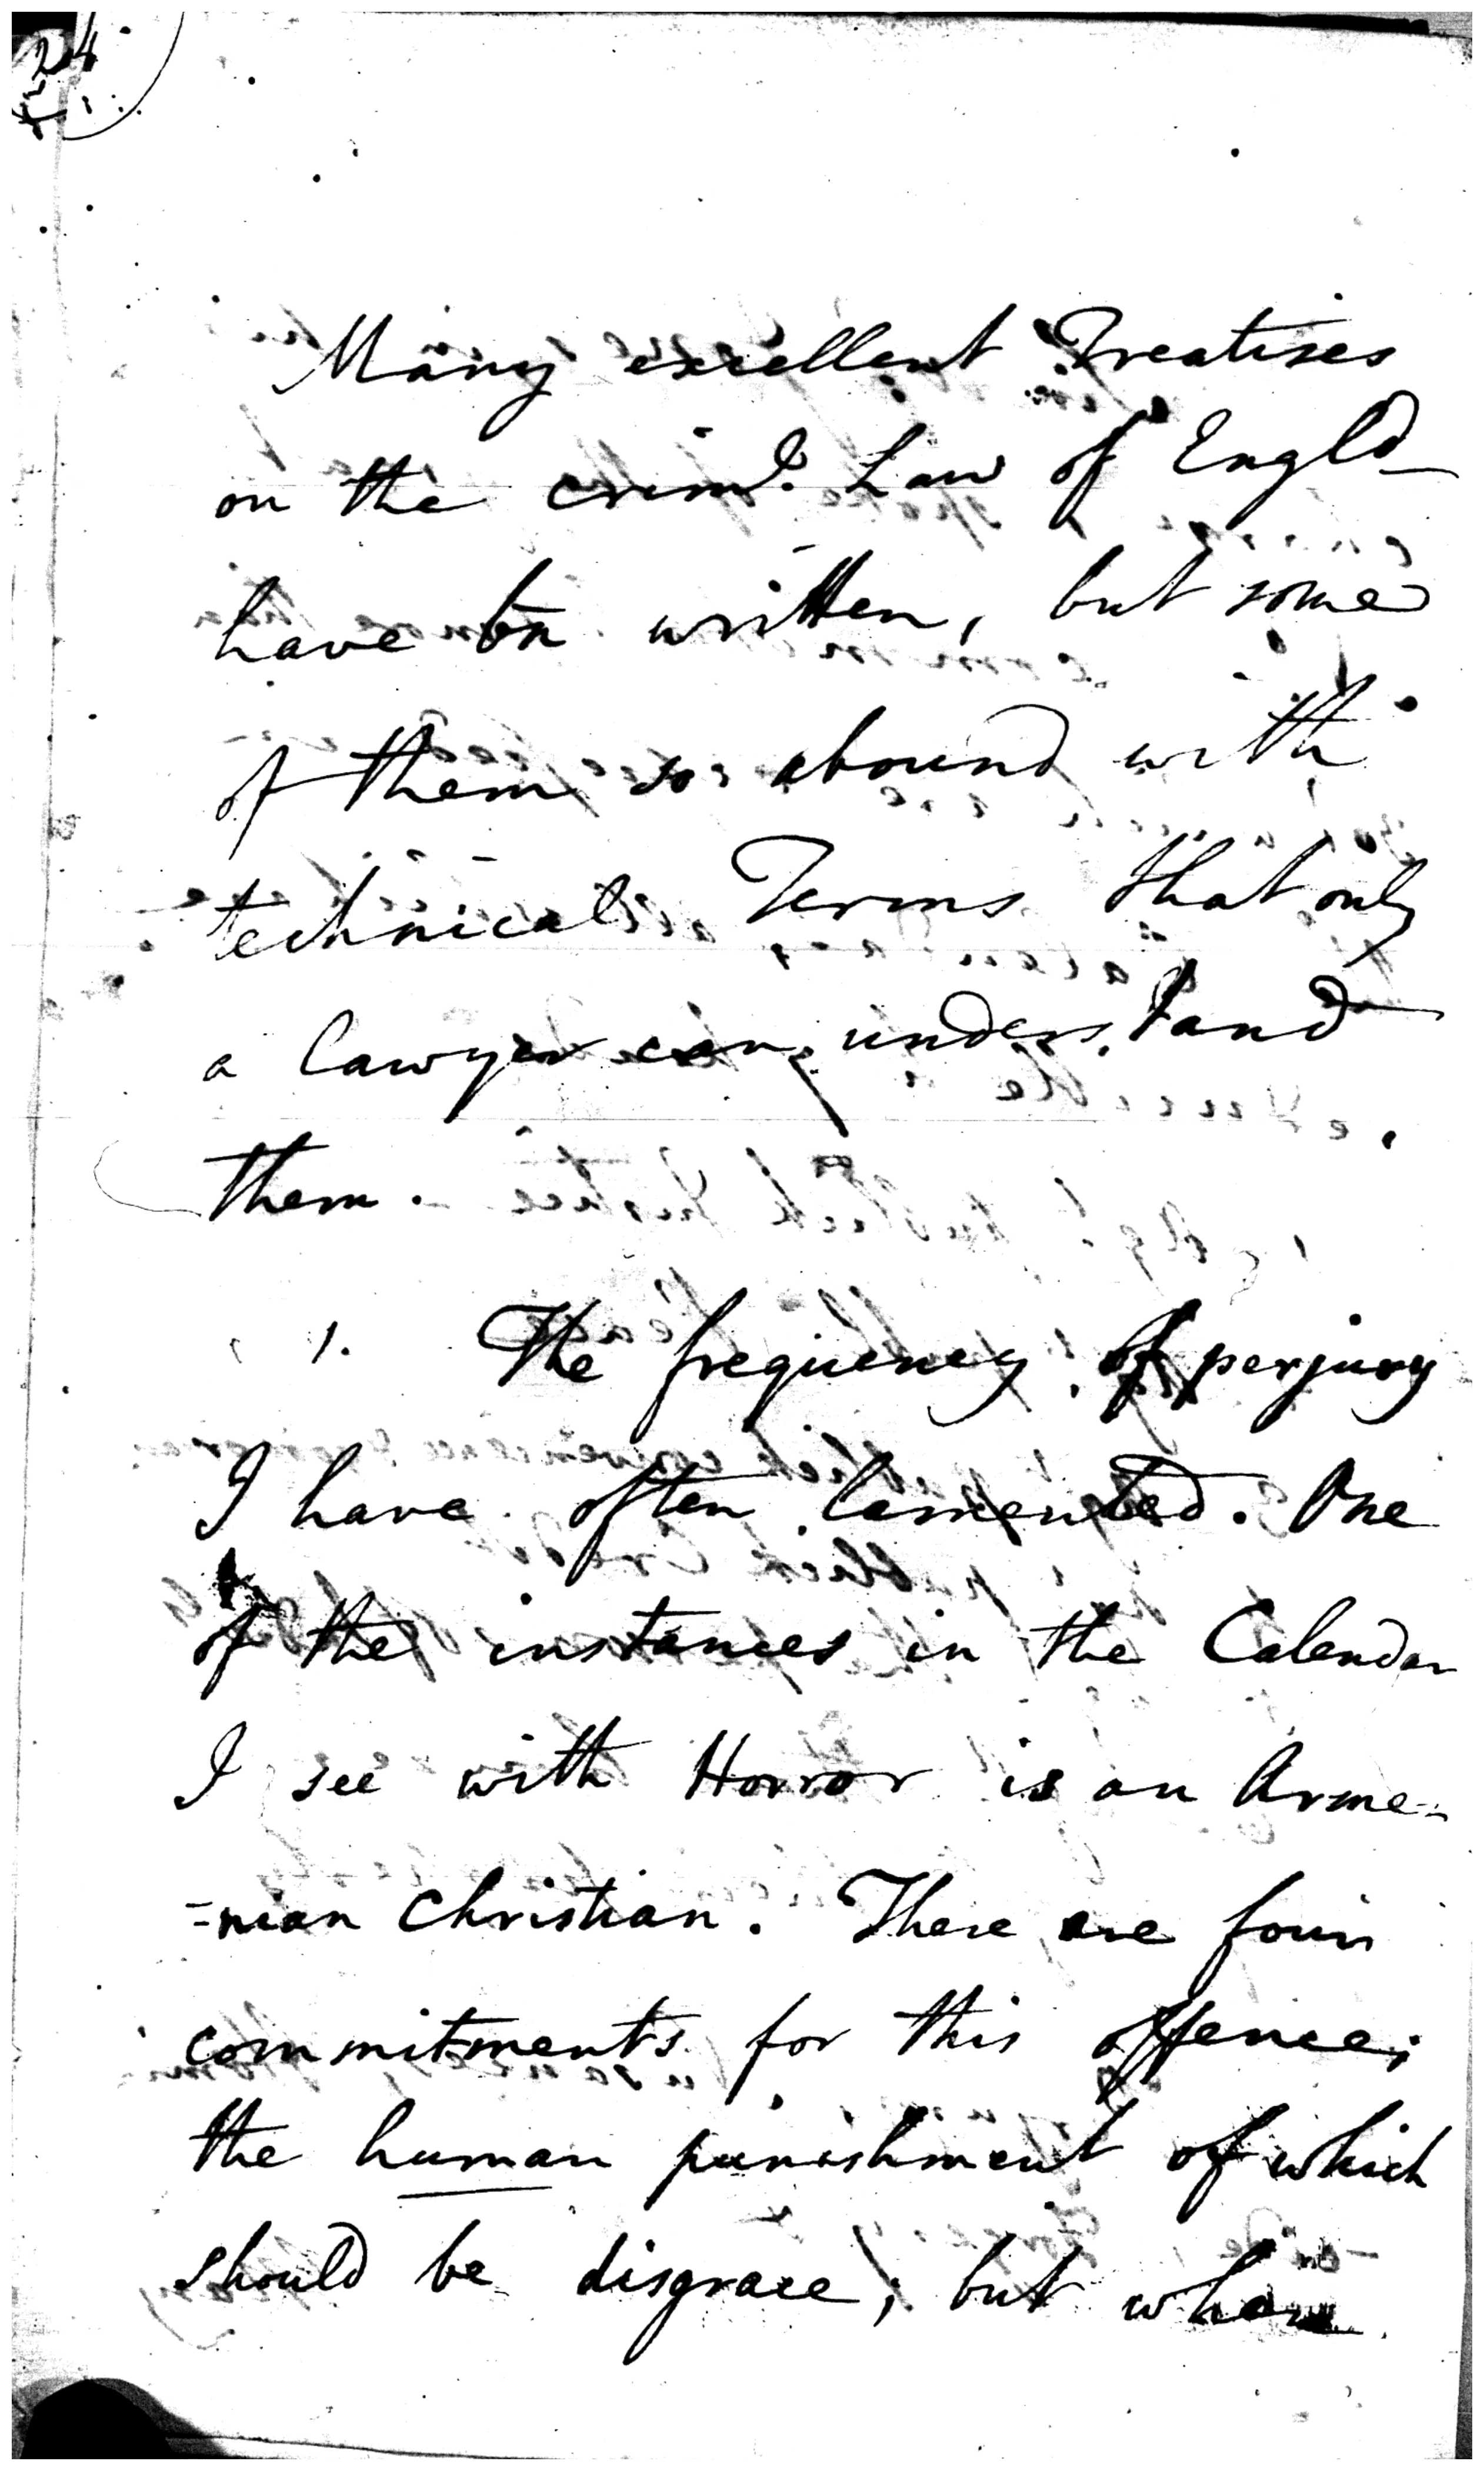 24
Many excellent Treatises
on the crim.l Law of Engld
have bn written, but some
of them so abound with
technical Terms that only
a lawyer can understand
them.
1. The frequency of perjury
I have often lamented. One
of the instances in the Calendar
I see with Horror is an Arme-
=nian Christian. There are four
commitments for this offence;
the human punishment of which
should be disgrace; but